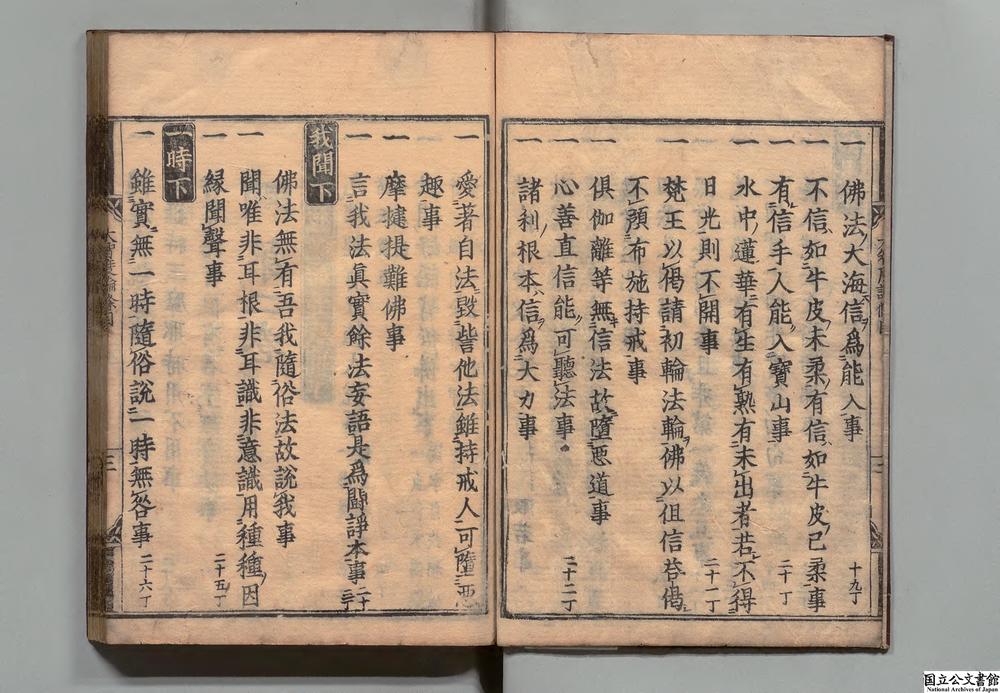 一 佛法大海信爲能入事 十九丁
一 不信如牛皮未柔有信如牛皮已柔事
一 有信手入能入寶山事 二十丁
一 水中蓮華有生有熟有未出者若不得
日光則不開事 二十一丁
一 梵王以偈請初輪法輪佛以但信荅偈
不須布施持戒事
一 俱伽離等無信法故墮惡道事
一 心善直信能可聽法事 二十二丁
一 諸利根本信爲大力事
一 愛著自法毀呰他法雖持戒人可墮惡
趣事
一 摩揵提難佛事
一 言我法眞實餘法妄語是爲鬪諍本事
我聞下
佛法無有吾我隨俗法故説我事
一 聞唯非耳根非耳識非意識用種種因
緣聞聲事 二十五丁
一時下
一 雖實無一時隨俗説一時無咎事 二十六丁
国立公文書館
National Archives of Japan